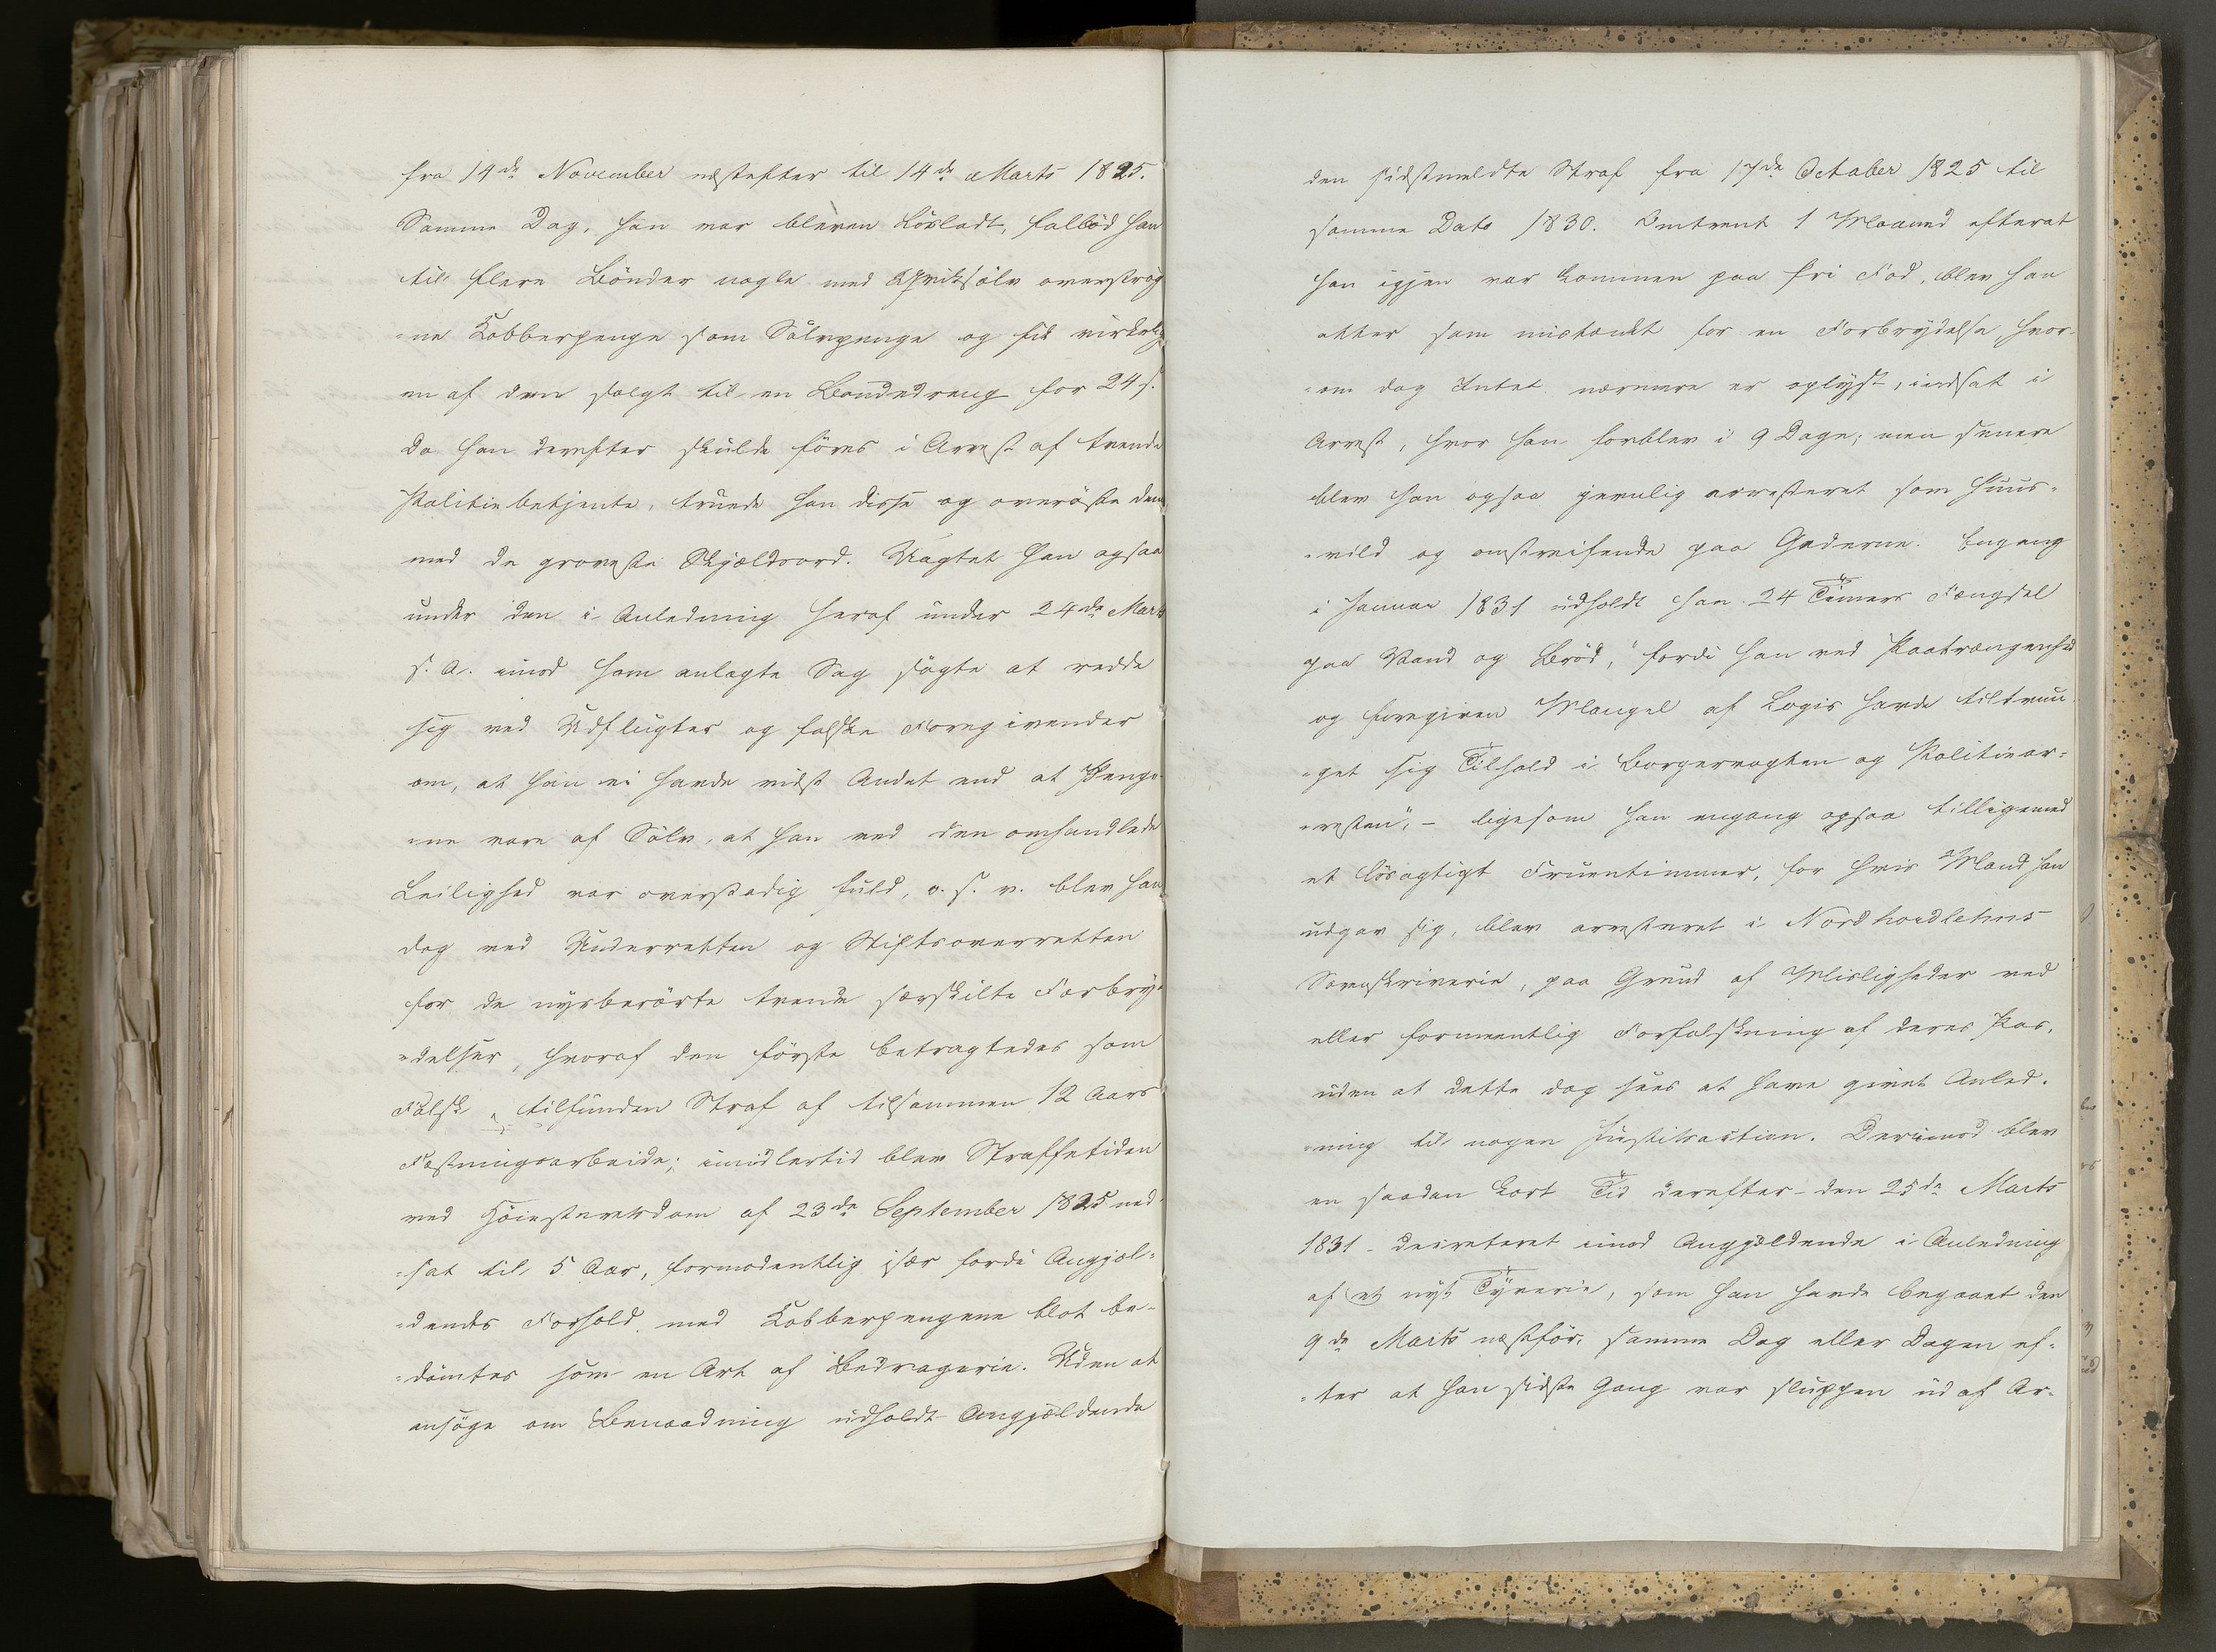 fra 14de November næstefter til 14de Marts 1825.
Samme Dag, han var bleven løsladt, falbød han
til flere Bönder nogle med Qviksölv overströg
=ne Kobberpenge som Sölvpenge og fik virkelig
en af dem solgt til en Bondedreng for 24 s.
Da han derefter skulde föres i Arrest af tvende
Politiebetjente, truede han disse og overöste dem
med de groveste Skjældsord. Uagtet han ogsaa
under den i Anledning heraf under 24de Marts
s. A. imod ham anlagte Sag sögte at redde
sig ved Udflugter og falske Foregivender
om, at han ei havde vidst Andet end at Penge-
=ne vare af Sölv, at han ved den omhandlede
Leilighed var overstadig fuld, o. s. v. blev han
dog ved Underretten og Stiftsoverretten
for de nysberörte tvende særskilte Forbry=
=delser, hvoraf den förste betragtedes som
Falsk, tilfunden Straf af tilsammen 12 Aars
Fæstningsarbeide; imidlertid blev Straffetiden
ved Höiesteretsdom af 23de September 1825 ned=
=sat til 5 Aar, formodentlig især fordi Angjæl=
=dendes Forhold med Kobberpengene blot be-
=dömtes som en Art af Bedragerie. Uden at
ansöge om Benaadning udholdt Angjældende
den sidstmeldte Straf fra 17de October 1825 til
samme Dato 1830. Omtrent 1 Maaned efterat
han igjen var kommen paa fri Fod, blev han
atter som mistænkt for en Forbrydelse, hvor=
=om dog Intet nærmere er oplyst, indsat i
Arrest, hvor han forblev i 9 Dage; men senere
blev han ogsaa jevnlig arresteret som huus=
=vild og omstreifende paa Gaderne. Engang
i Januar 1831 udholdt han 24 Timers Fængsel
paa Vand og Bröd, "fordi han ved Paatrængenhed
og foregiven Mangel af Logis havde tiltvun=
=get sig Tilhold i Borgervagten og Politiear=
=resten", - ligesom han engang ogsaa tilligemed
et lösagtigt Fruentimmer, for hvis Mand han
udgav sig, blev arresteret i Nordhordlehns
Sorenskriverie, paa Grund af Misligheder ved
eller formeentlig Forfalskning af deres Pas,
uden at dette dog sees at have givet Anled=
=ning til nogen Justitsaction. Derimod blev
en saadan kort Tid derefter - den 25de Marts
1831 - decreteret imod Angjældende i Anledning
af et nyt Tyverie, som han havde begaaet den
9de Marts næstför, samme Dag eller Dagen ef=
=ter at han sidste Gang var sluppen ud af Ar=